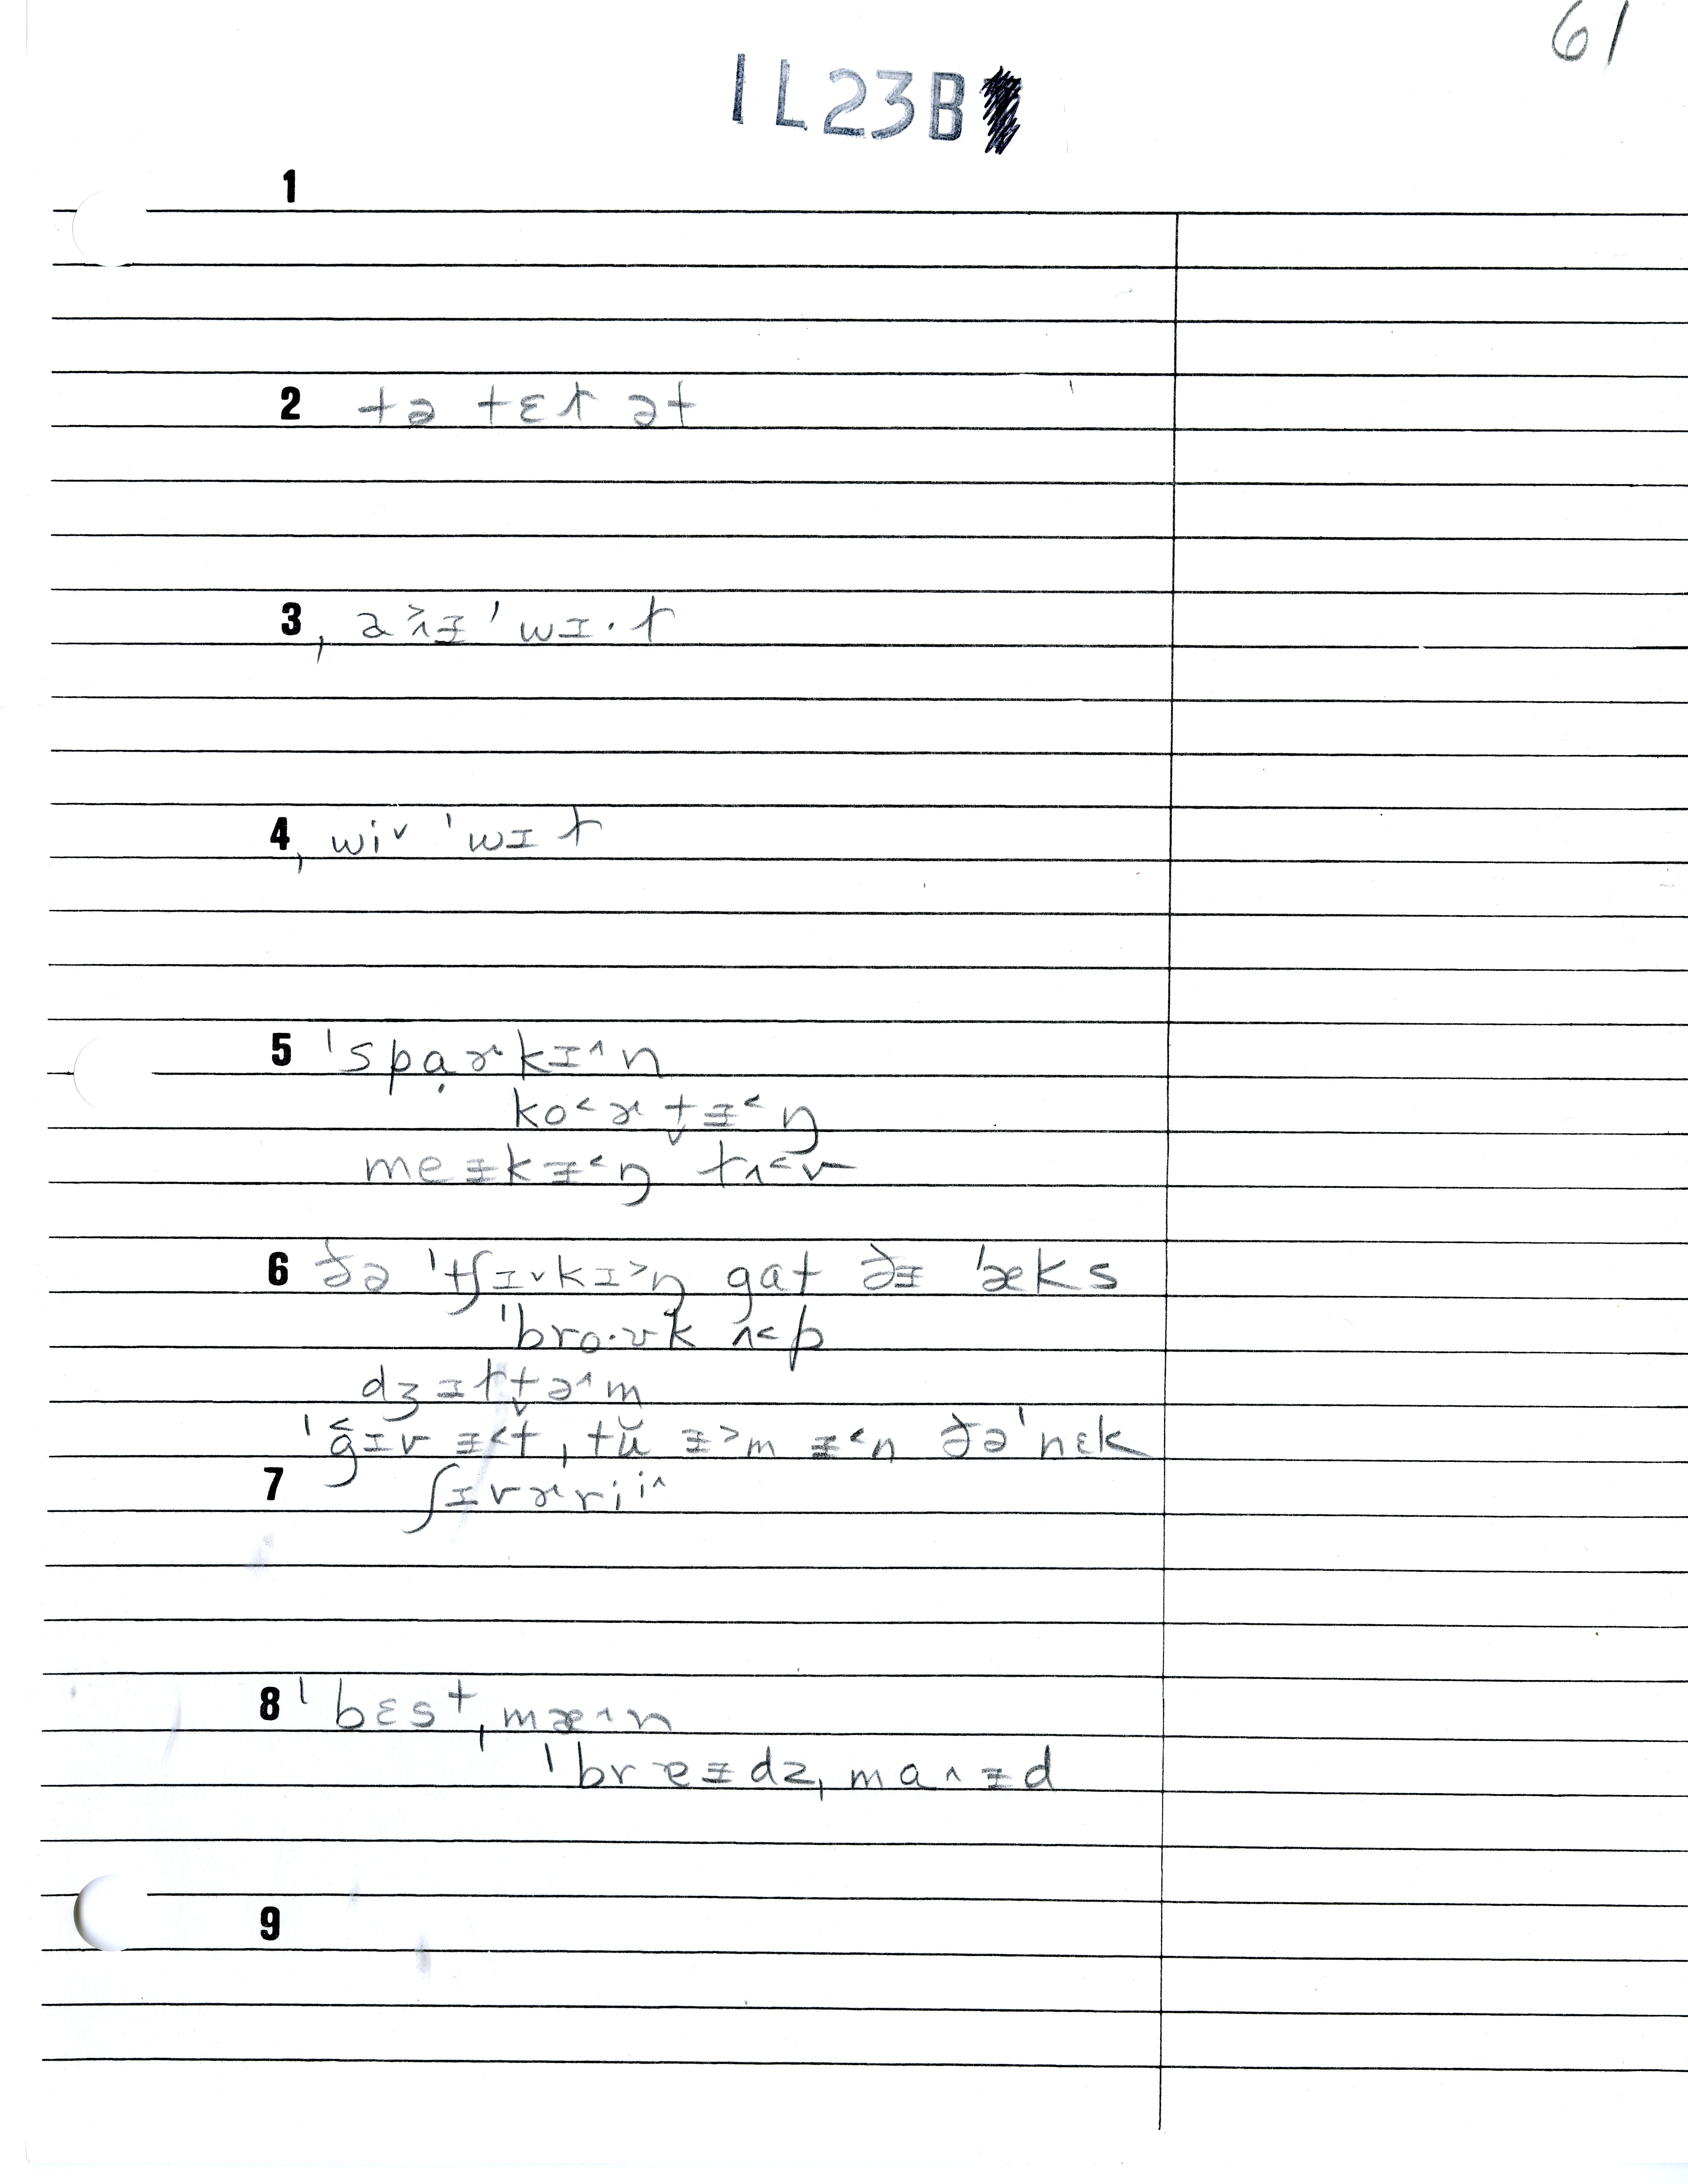 61
1L23B
1
2 tə tɛɫ ət
3 ˌə˃ʌɪ̵ ˈwɪ·ɫ
4 ˌwi˅ ˈwɪɫ
5 ˈspɑ̣ɚkɪ˄n
ko˂ɚt̬ɪ̵˂ŋ
meɪ̵kɪ̵˂ŋ lʌ˂v
6 ðə ˈtʃɪ˅kɪ˃ŋ gat ðɪ̵ ˈæks
ˈbro·ʊk ʌ˂p
dʒɪɫt̬ə˄m
ˈg̬ɪv ɪ̵˂t ˌtŭ ɪ̵˃m ɪ̵˂n ðə ˈnɛk
7 ʃɪvɚri̯i˄
8 ˈbɛst ˌmæ˄n
ˈbreɪ̵dz ˌma˄ɪ̵d
9